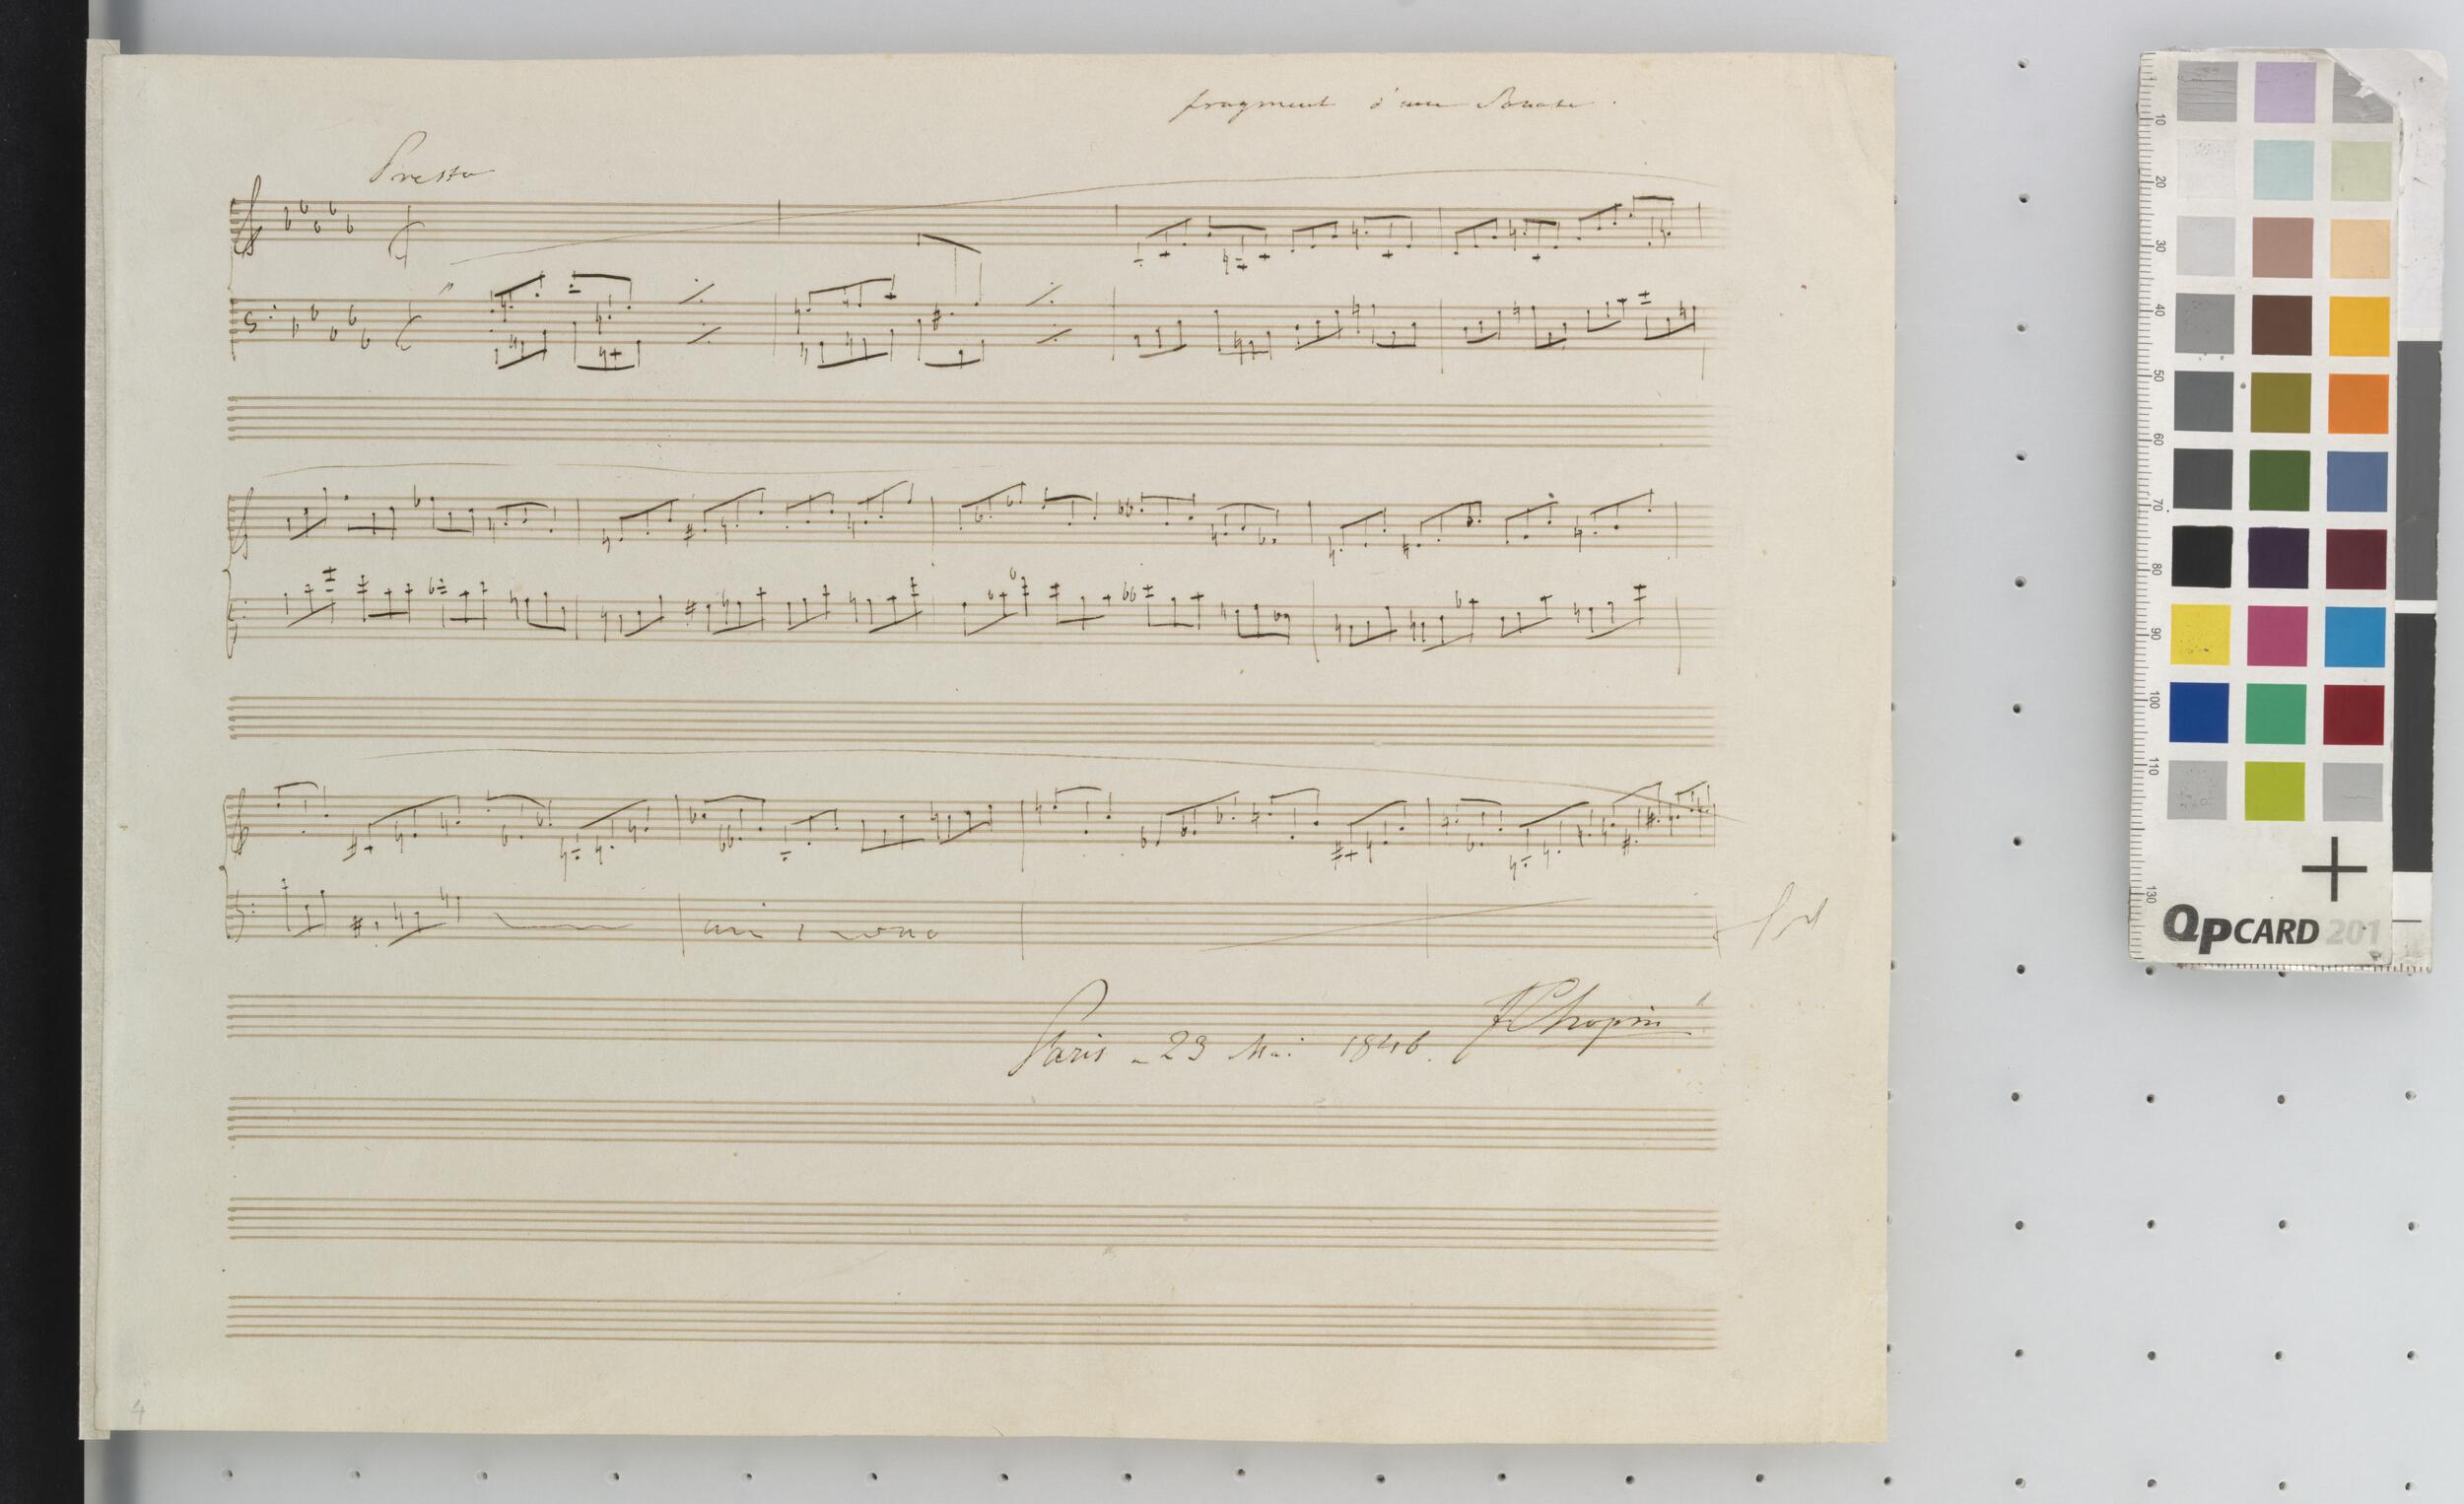 fragment d'une Sonate.
Presto
all' unisono
Paris - 23 Mai 1846. FChopin
4
10
20
30
40
50
60
70
80
90
100
110
130
QPCARD 201